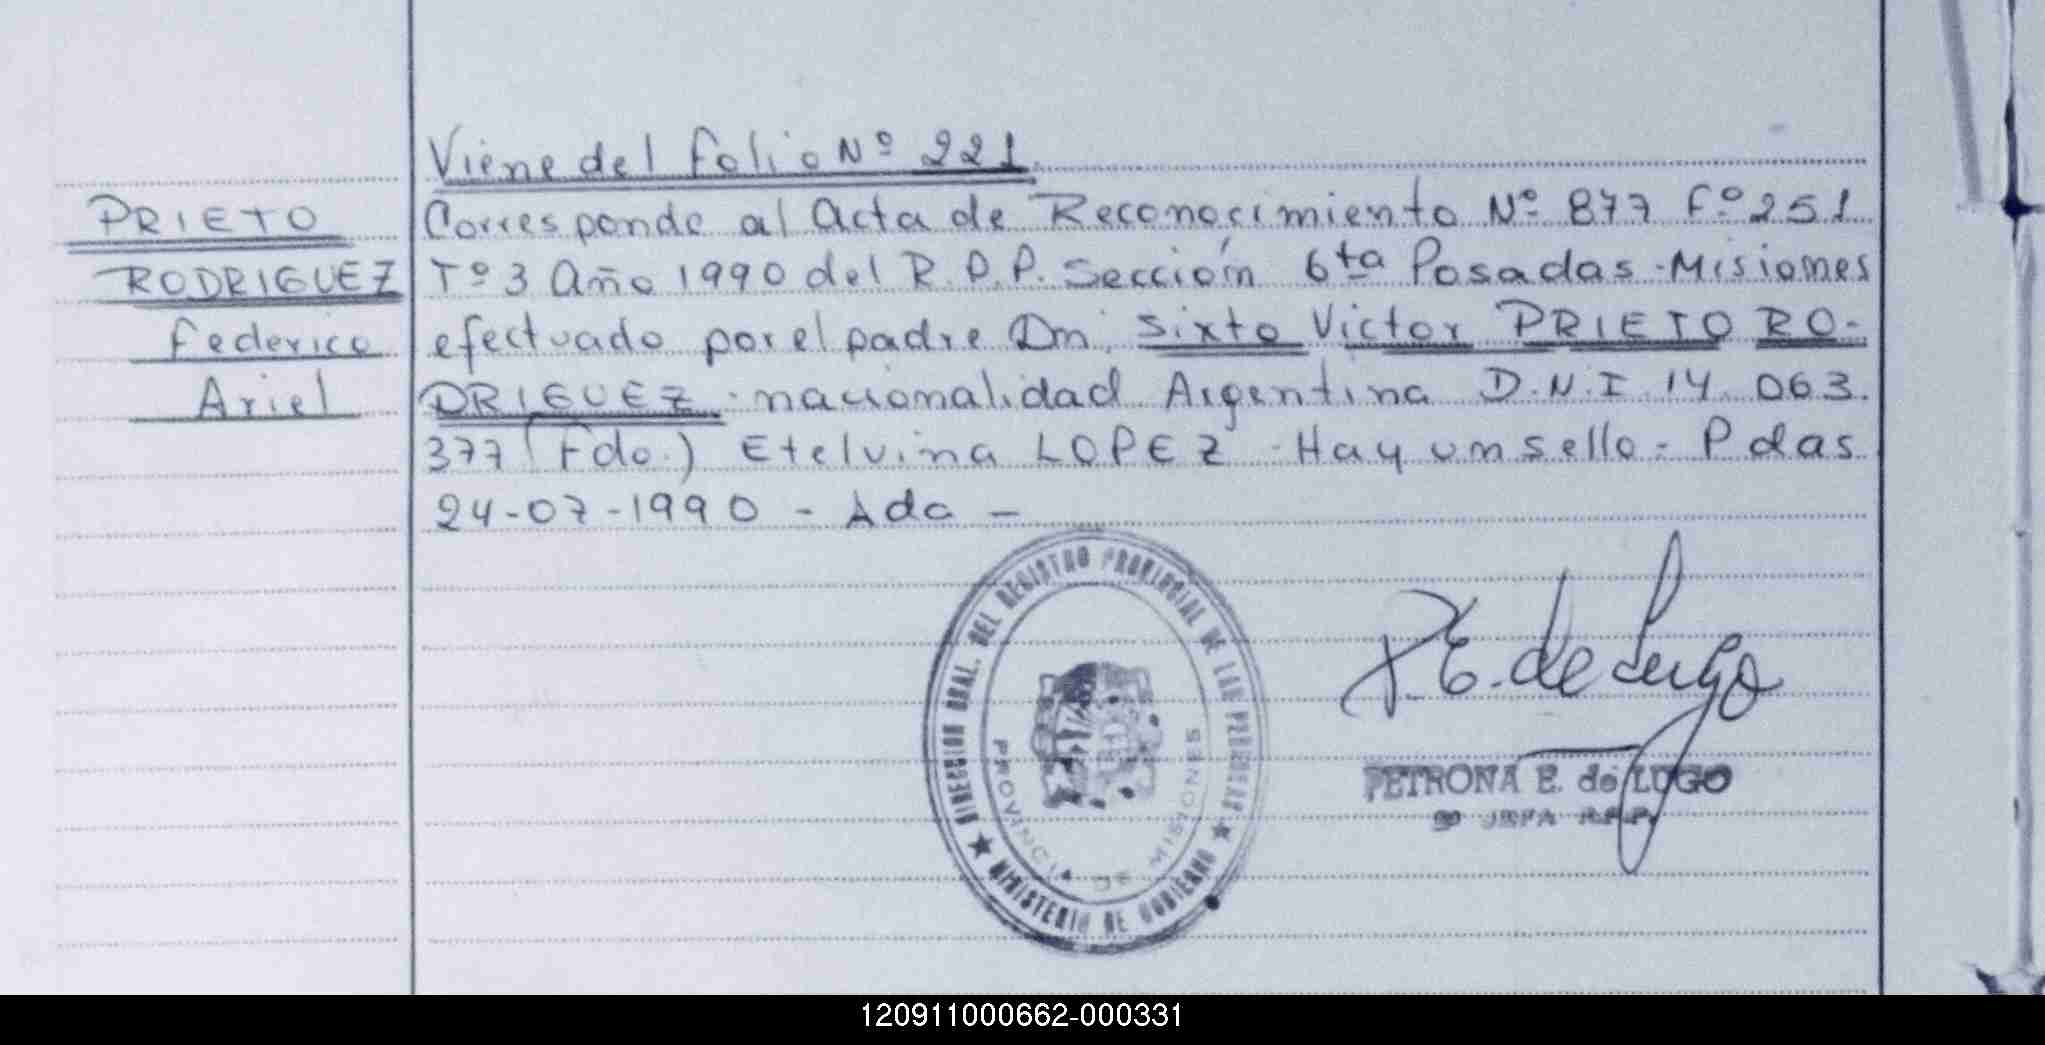 Viene del folio Nº 221
PRIETO
RODRIGUEZ
Federico
Ariel
Corresponde al Acta de Reconocimiento Nº 877 Fº 251
Tº 3 Año 1990 del R.P.P. Sección 6ta Posadas - Misiones
efectuado por el padre Dn. Sixto Victor PRIETO RO-
DRIGUEZ - nacionalidad Argentina D.N.I 14.063.
377 (Fdo.) Etelvina LOPEZ - Hay un sello - Pdas
24-07-1990 - Ada -
DIRECCION GRAL. DEL REGISTRO PROVINCIAL DE LAS PERSONAS
MINISTERIO DE GOBIERNO
PROVINCIA DE MISIONES
P. E. de Lugo
PETRONA E. de LUGO
JEFA R.P.P.
120911000662-000331